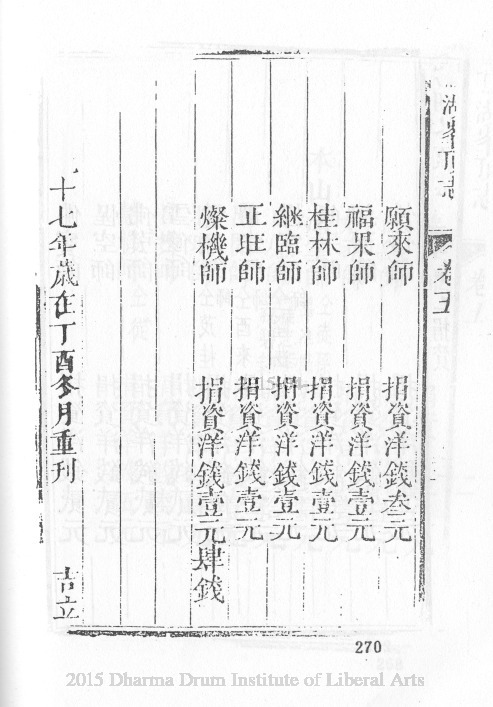 峯頂志
卷五
願來師 捐資洋錢叁元
福果師 捐資洋錢壹元
桂林師 捐資洋錢壹元
繼臨師 捐資洋錢壹元
正旺師 捐資洋錢壹元
燦機師 捐資洋錢壹元肆錢
十七年歲在丁酉冬月重刊 吉立
270
2015 Dharma Drum Institute of Liberal Arts